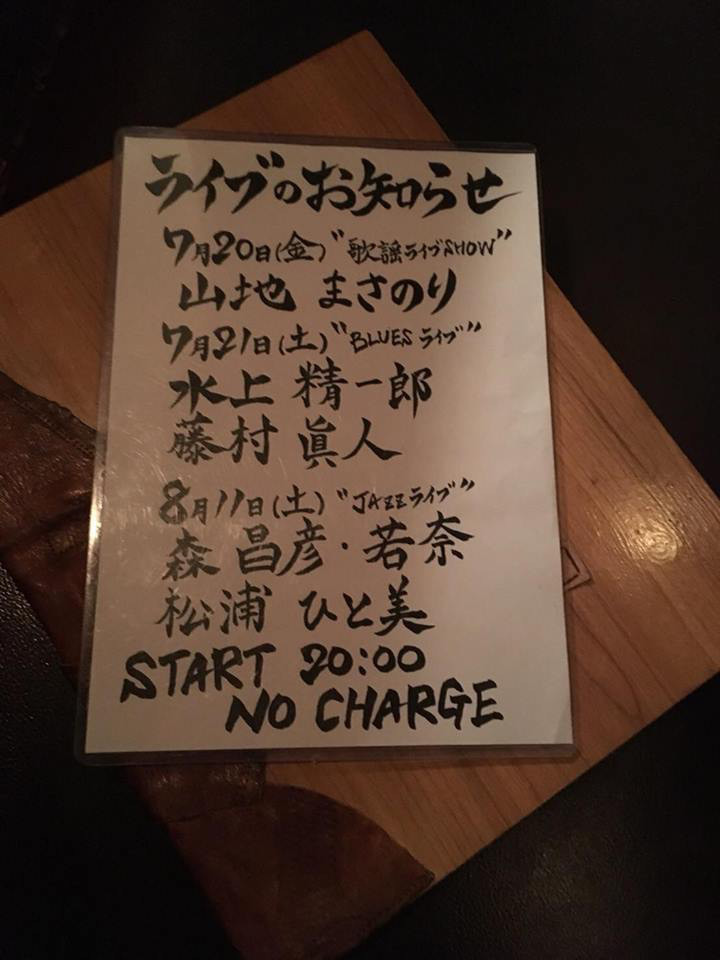 ライブのお知らせ
7月20日(金)"歌謡ライブSHOW"
山地 まさのり
7月21日(土)"BLUES ライブ"
水上 精一郎
藤村 眞人
8月11日(土)"JAZZライブ"
森 昌彦・若奈
松浦 ひと美
START 20:00
NO CHARGE